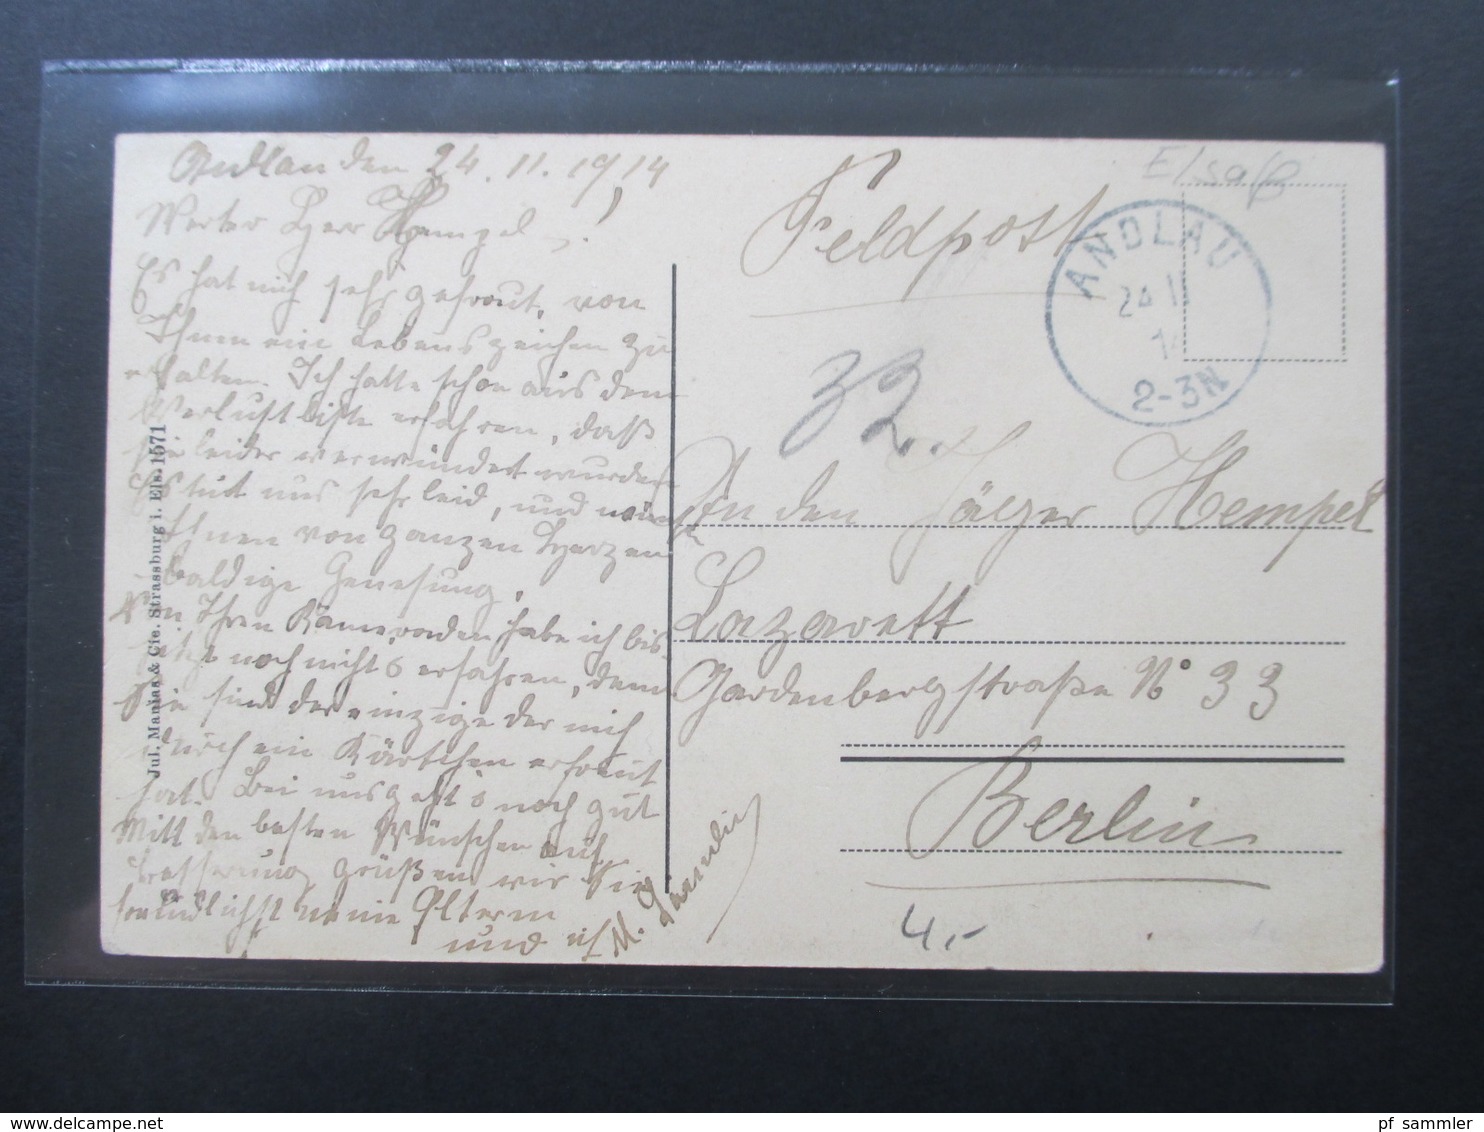 Andlau den 24.11.1914
Werter Herr Hempel!
Es hat mich sehr gefreut, von
Ihnen ein Lebenszeichen zu
erhalten. Ich hatte schon aus dem
Verlustliste erfahren, daß
Sie leider verwundet wurden
Es tut uns sehr leid, und wünsche
Ihnen von ganzen Herzen
baldige Genesung.
Von Ihren Kameraden habe ich bis
jetzt noch nichts erfahren, denn
Sie sind der einzige der mich
durch ein Kärtchen erfreut
hat. Bei uns geht's noch gut
Mitt den besten Wünschen auf
Besserung grüßen wir Sie
freundlichst meine Eltern
und ich M.
Jul. Manias & Cie. Strassburg i. Els. 1571
Feldpost
Elsaß
ANDLAU
24 11
14
2-3N
32.
An den Jäger Hempel
Lazarett
Gardenbergstraße No 33
Berlin
4,-
pf_sammler